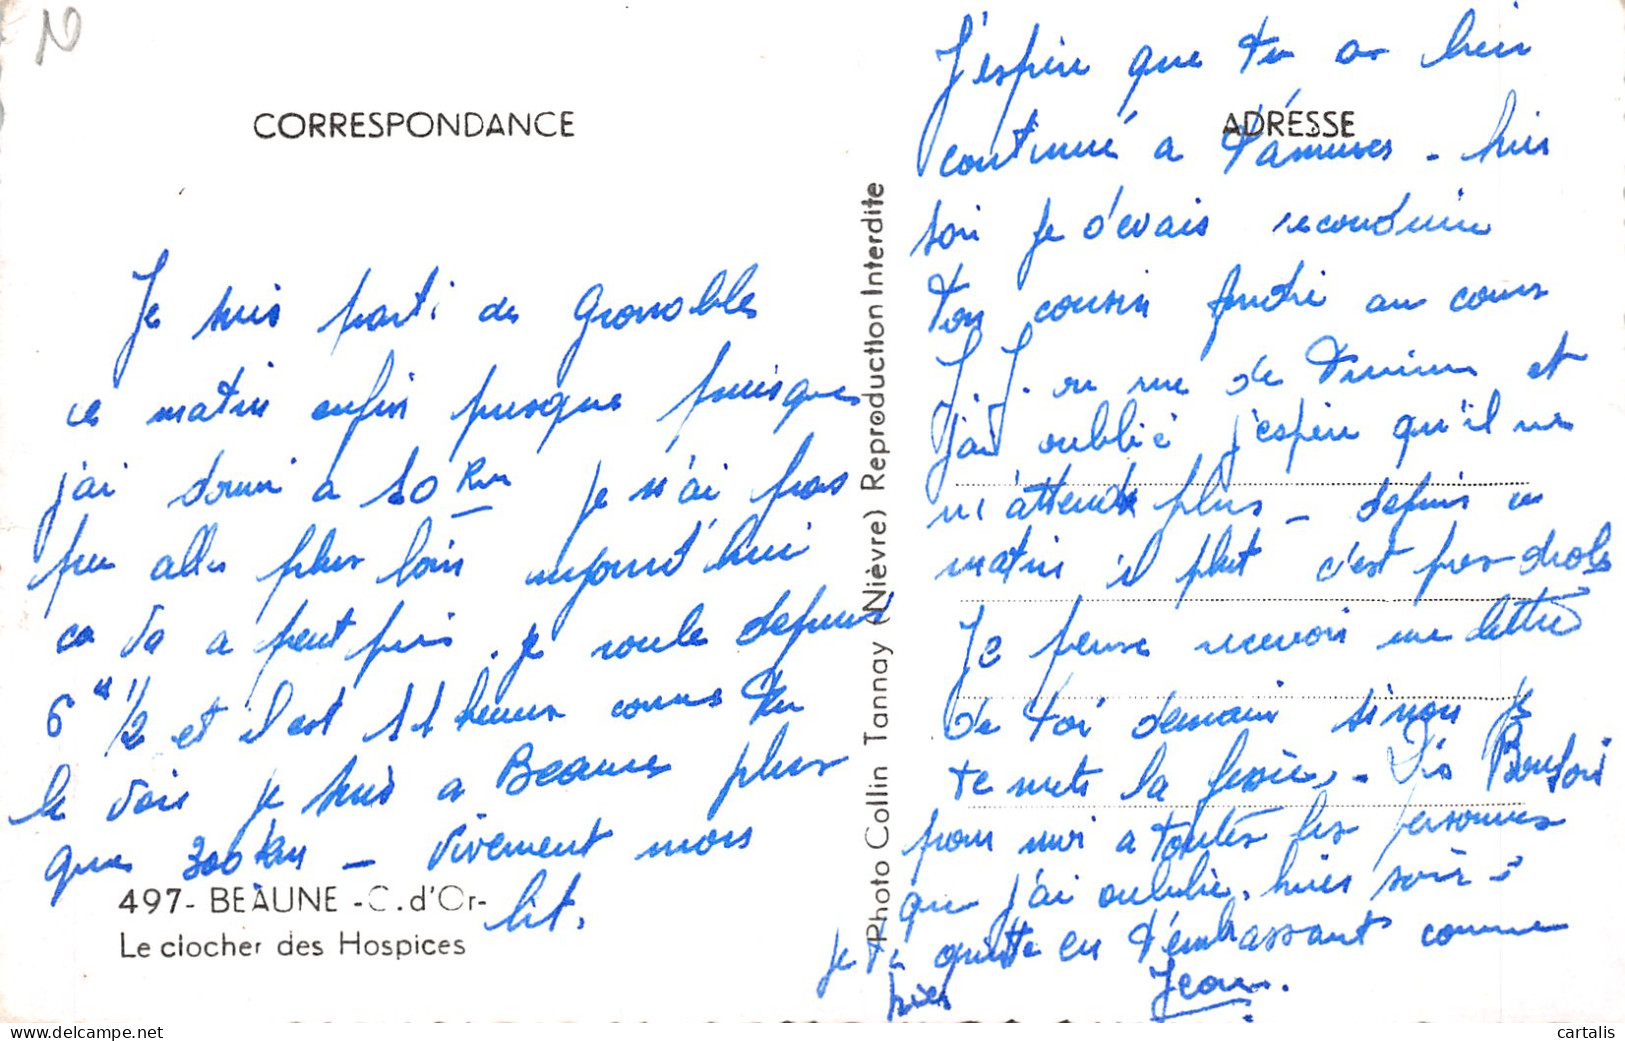 CORRESPONDANCE
Je suis parti de Grenoble
ce matin enfin presque puisque
j'ai dormi a 10 km je n'ai pas
pu aller plus loin aujourd'hui
ca va a peut pris. je roule depuis
6 h 1/2 et il est 11 heures comme tu
le vois je suis a Beaune plus
que 300 km _ vivement mors
lit.
497- BEAUNE -C.d'Or-
Le clocher des Hospices
Photo Collin Tannay (Nièvre) Reproduction Interdite
ADRESSE
J'espère que tu as bien
continué a t'amuser - hier
soir je devais reconduire
ton cousin au cours
J.J. ou rue de et
j'ai oublié j'espère qu'il ne
m'attends plus _ depuis ce
matin il plut c'est pas drole
Je pense recevoir une lettre
de toi demain sinon je
te mets la fessée. - Dis Bonsoir
pour moi a toutes les personnes
que j'ai oublié. hier soir -
je te quitte en t'embrassant comme
hier
Jean.
cartalis